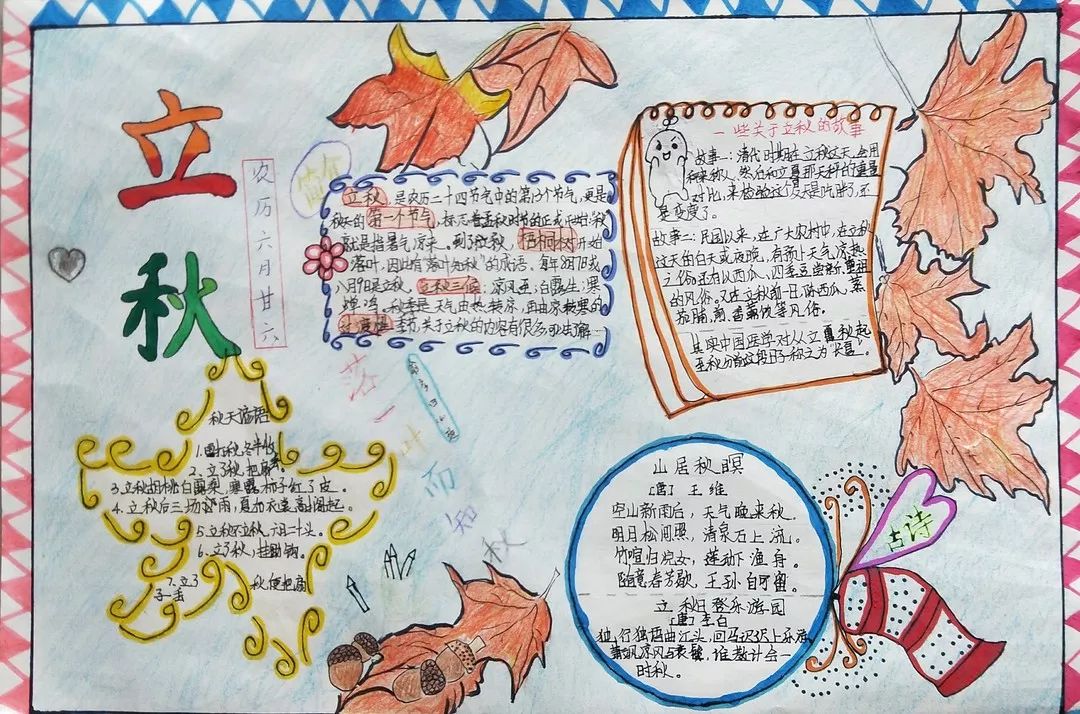 立
秋
农历六月廿六
简介
立秋 是农历二十四节气中的第13个节气,更是
秋天的第一个节气,标志着孟秋时节的正式开始:"秋"
就是指暑气凉来。到了立秋,梧桐树开始
落叶,因此有"落叶知秋"的成语。每年8月7日或
八月9日是立秋。立秋三候:凉风至;白露生;寒
蝉鸣。秋季是天气由热转凉,再由凉转寒的
过渡性季节。关于立秋的内容有很多可以了解…
一些关于立秋的故事
故事一:清代时期在立秋这天,会用
和立夏那天秤的重量
对比,来检验这个夏天是
是变瘦了。
故事二:民国以来,在广大农村中,在立秋
这天的白天或夜晚,有预卜天气凉热
之俗。还有以西瓜、四季豆尝新、奠祖
的风俗。又在立秋前一日,陈西瓜、蒸
茄脯、煎香薷饮等风俗。
其实中国医学对从立秋起
至秋分前这段日子称之为"长夏"。
落一叶而知秋
秋天谚语
1.雷打秋,冬半收
2、立了秋,把扇
3.立秋胡桃白露梨,寒露柿子红了皮。
4.立秋后三场雨,夏布衣裳高阁起。
5.立秋不立秋,六月二十头。
6.立了秋,挂锄钩。
7.立了秋,便把扇
子一丢
山居秋暝
[唐] 王维
空山新雨后,天气晚来秋。
明月松间照,清泉石上流。
竹喧归浣女,莲动下渔舟。
随意春芳歇,王孙自可留。
立秋日登乐游园
[唐]李白
独行独语曲江头,回马迟迟上乐游。
萧飒凉风与衰鬓,谁教计会一
时秋。
古诗